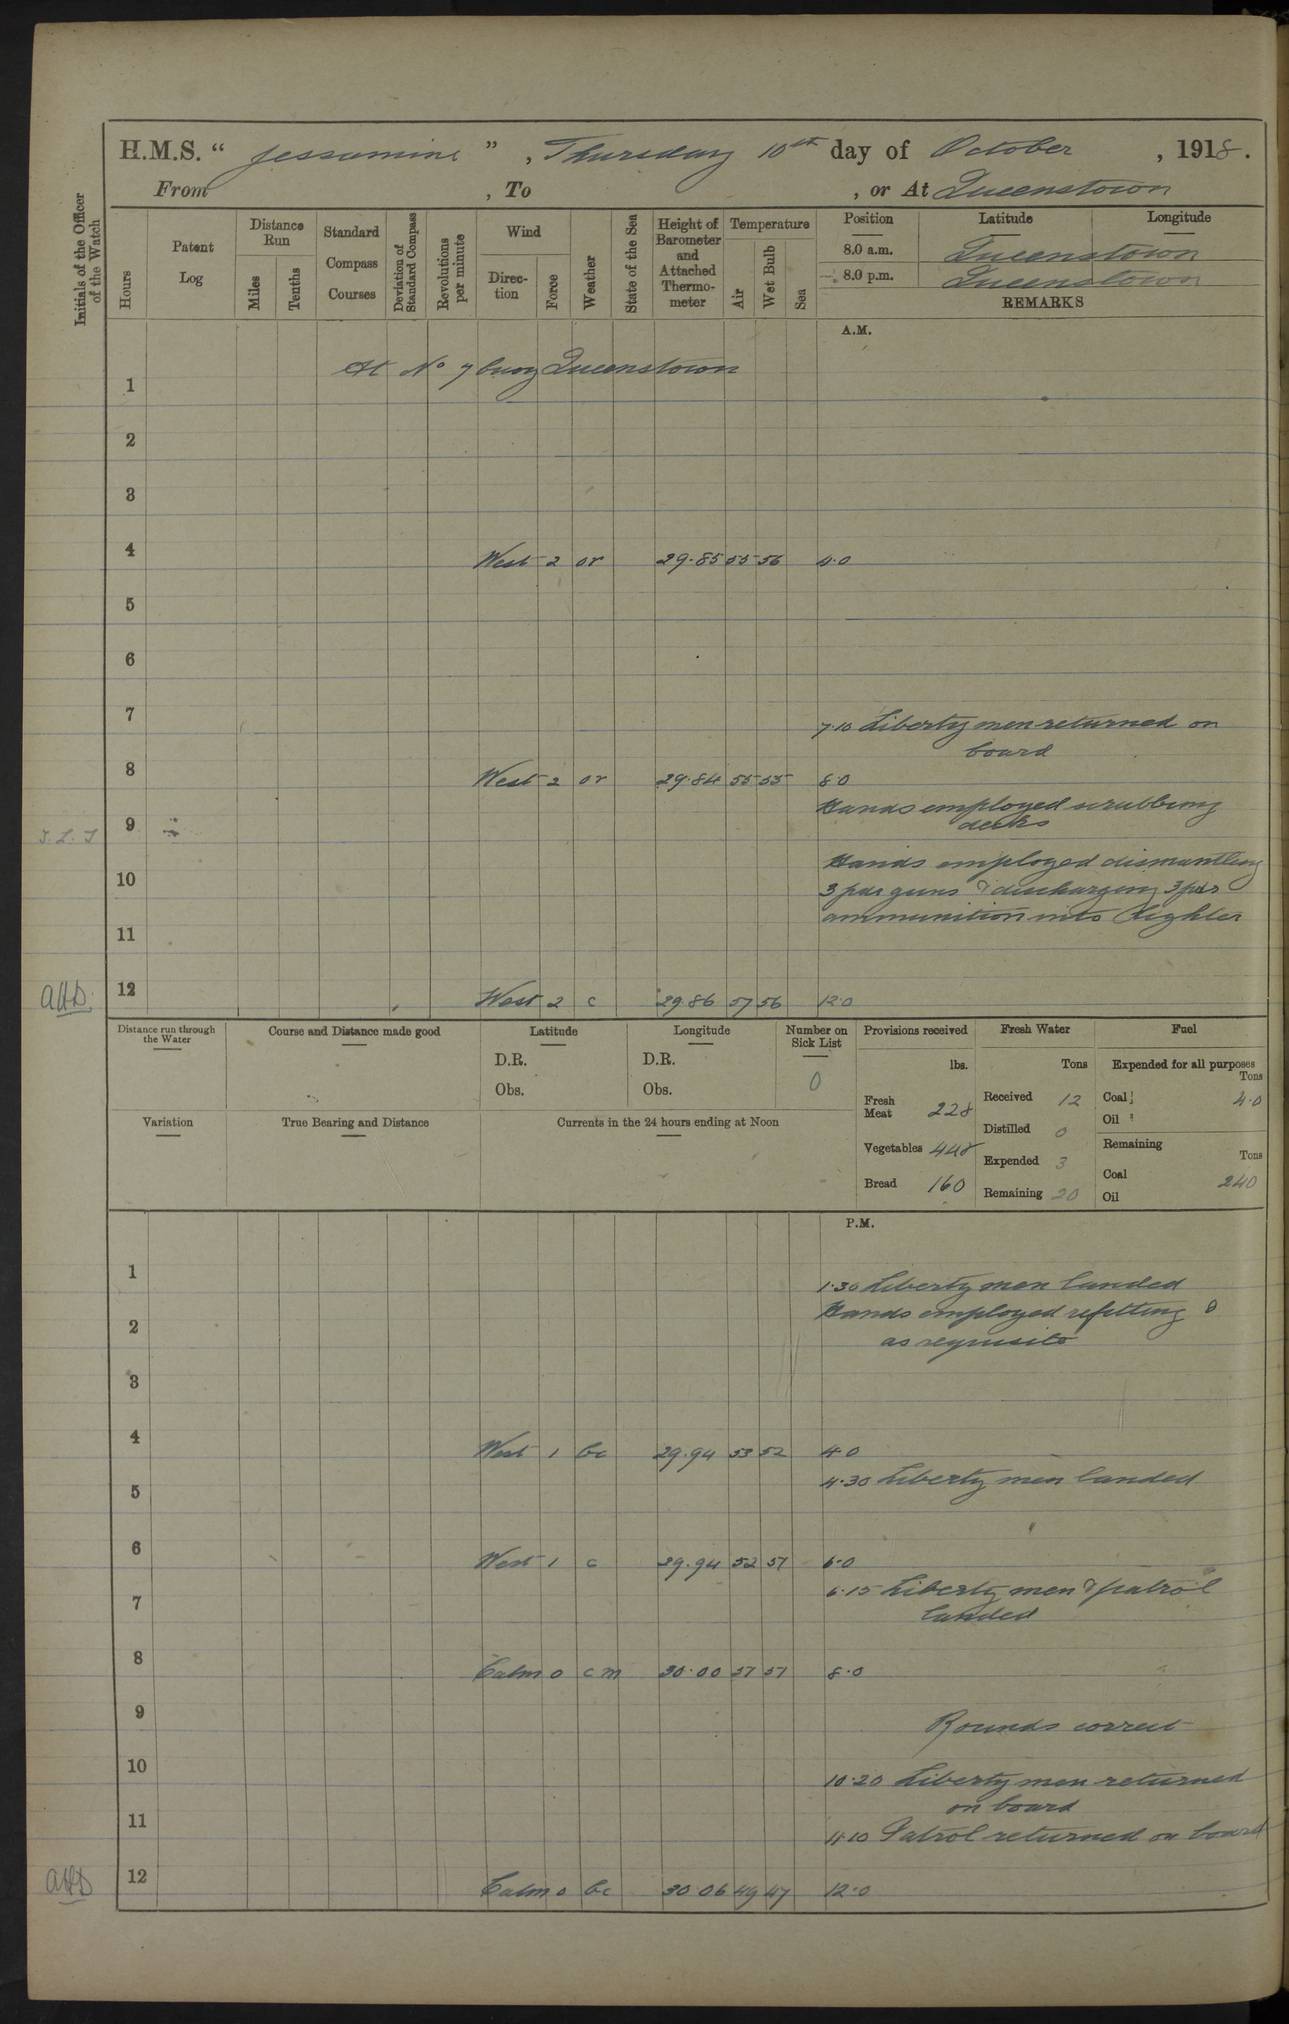 H.M.S. " Jessamine " , Thursday 10th day of October , 1918.
From , To , or At Queenstown
Initials of the Officer of the Watch
Hours
Patent Log
Distance Run
Miles
Tenths
Standard Compass Courses
Deviation of Standard Compass
Revolutions per minute
Wind
Direc-tion
Force
Weather
State of the Sea
Height of Barometer and Attached Thermo-meter
Temperature
Air
Wet Bulb
Sea
Position Latitude Longitude
8.0 a.m. Queenstown
8.0 p.m. Queenstown
REMARKS
A.M.
At No 7 buoy Queenstown
1
2
3
4 West 2 or 29.85 55 56 4.0
5
6
7
7.10 Liberty men returned on
board
8 West 2 or 29.84 55 55 8.0
Hands employed scrubbing
9 decks
Hands employed dismantling
10 3 pdr guns & discharging 3 pdr
ammunition into lighter
11
AHD. 12 West 2 c 29.86 57 56 12.0
Distance run through the Water
Course and Distance made good
Latitude
D.R.
Obs.
Longitude
D.R.
Obs.
Number on Sick List
0
Provisions received
lbs.
Fresh Meat 228
Vegetables 448
Bread 160
Fresh Water
Tons
Received 12
Distilled 0
Expended 3
Remaining 20
Fuel
Expended for all purposes
Tons
Coal 4.0
Oil
Remaining
Tons
Coal 240
Oil
Variation
True Bearing and Distance
Currents in the 24 hours ending at Noon
P.M.
1
1.30 Liberty men landed
Hands employed refitting &
2 as requisite
3
4 West 1 bc 29.94 53 52 4.0
4.30 Liberty men landed
5
6 West 1 c 29.94 52 51 6.0
6.15 Liberty men & patrol
7 landed
8 Calm 0 c m 30.00 51 51 8.0
9 Rounds correct
10
10.20 Liberty men returned
on board
11
11.10 Patrol returned on board
AHD 12 Calm 0 bc 30.06 49 47 12.0